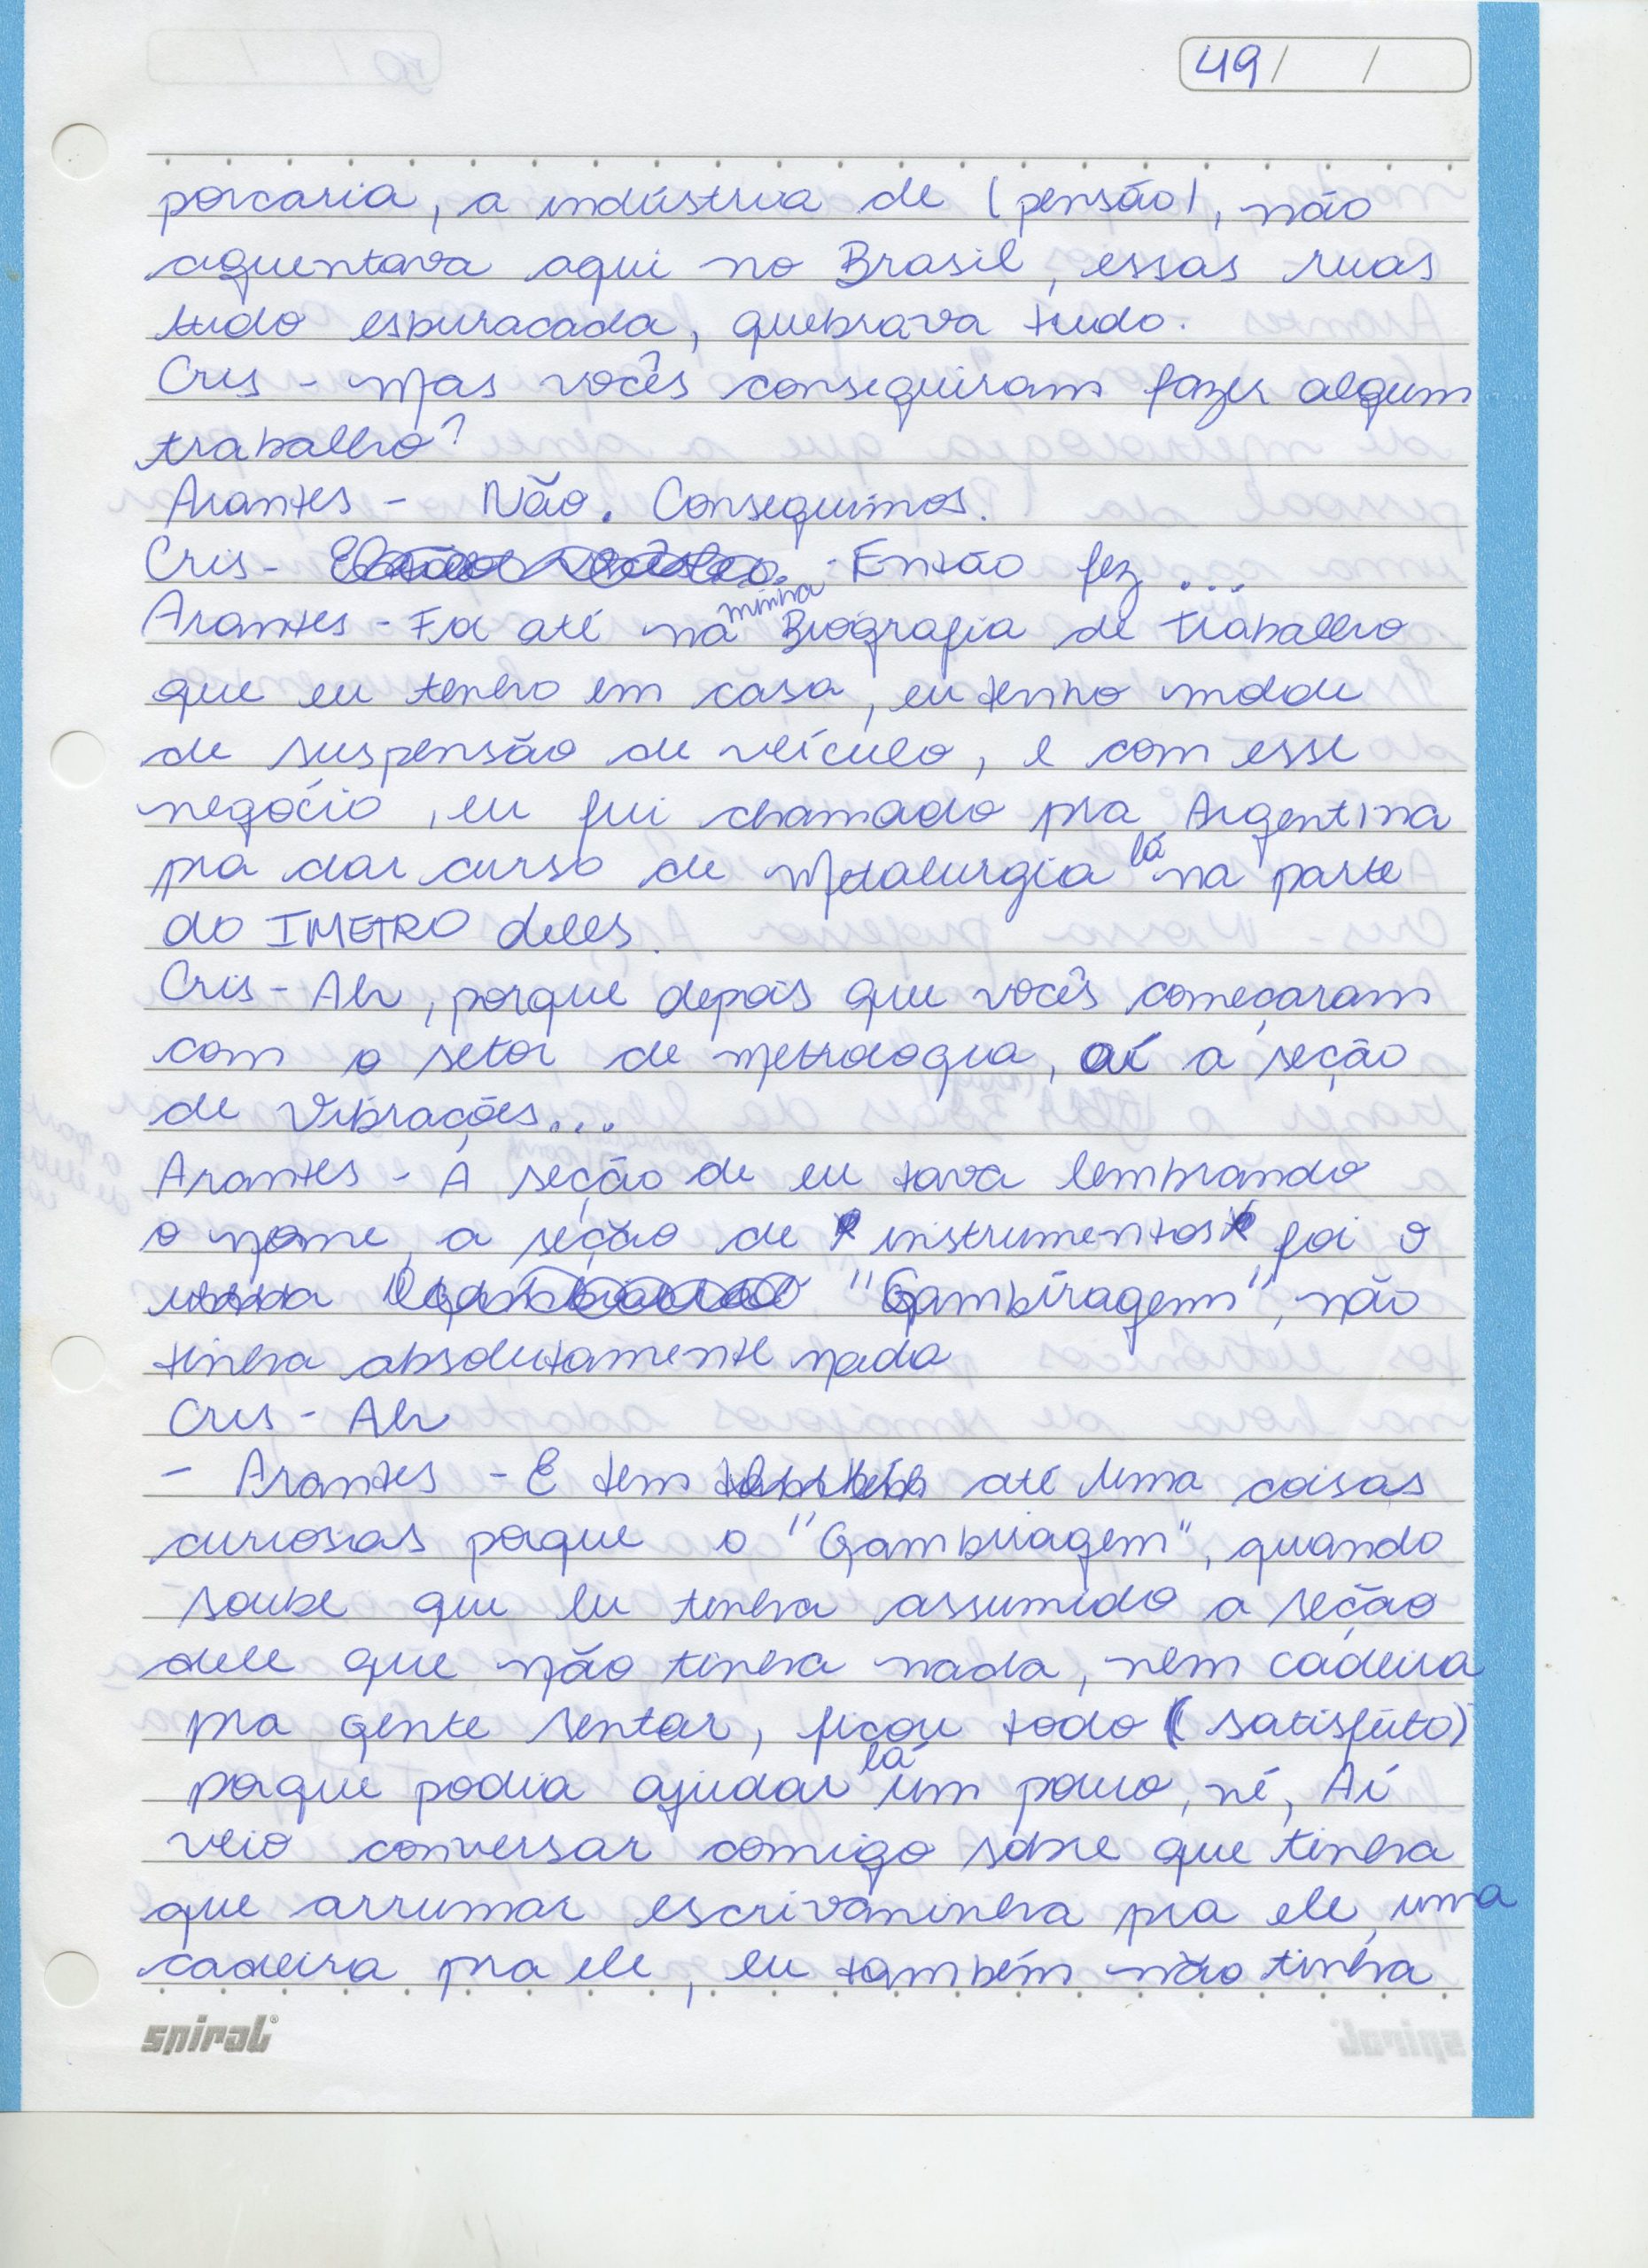 49/ /
porcaria, a indústria de (pensão), não
aguentava aqui no Brasil, essas ruas
tudo esburacada, quebrava tudo.
Cris - Mas vocês conseguiram fazer algum
trabalho?
Arantes - Não. Conseguimos.
Cris - Então fez ...
Arantes - Foi até na minha Biografia de trabalho
que eu tenho em casa, eu tenho
de suspensão de veículo, e com esse
negócio, eu fui chamado pra Argentina
pra dar curso de Metalurgia lá na parte
do IMETRO deles.
Cris - Ah, porque depois que vocês começaram
com o setor de metrologia, aí a seção
de Vibrações...
Arantes - A seção de eu tava lembrando
o nome, a seção de instrumentos foi o
"Gambiragem", não
tinha absolutamente nada
Cris - Ah
- Arantes - E tem até uma coisas
curiosas porque o "Gambiragem", quando
soube que eu tinha assumido a seção
dele que não tinha nada, nem cadeira
pra gente sentar, ficou todo (satisfeito)
porque podia ajudar lá um pouco, né, Aí
veio conversar comigo sobre que tinha
que arrumar escrivaninha pra ele, uma
cadeira pra ele, eu também não tinha
spiral®